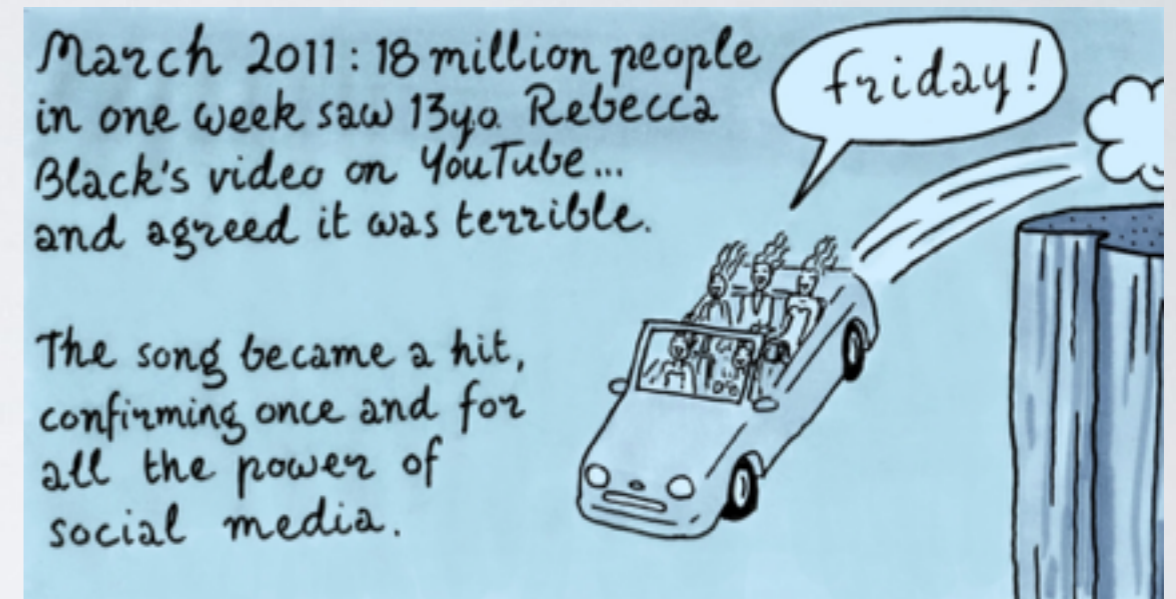 March 2011: 18 million people
in one week saw 13yo. Rebecca
Black's video on YouTube...
and agreed it was terrible.
The song became a hit,
confirming once and for
all the power of
social media.
friday!